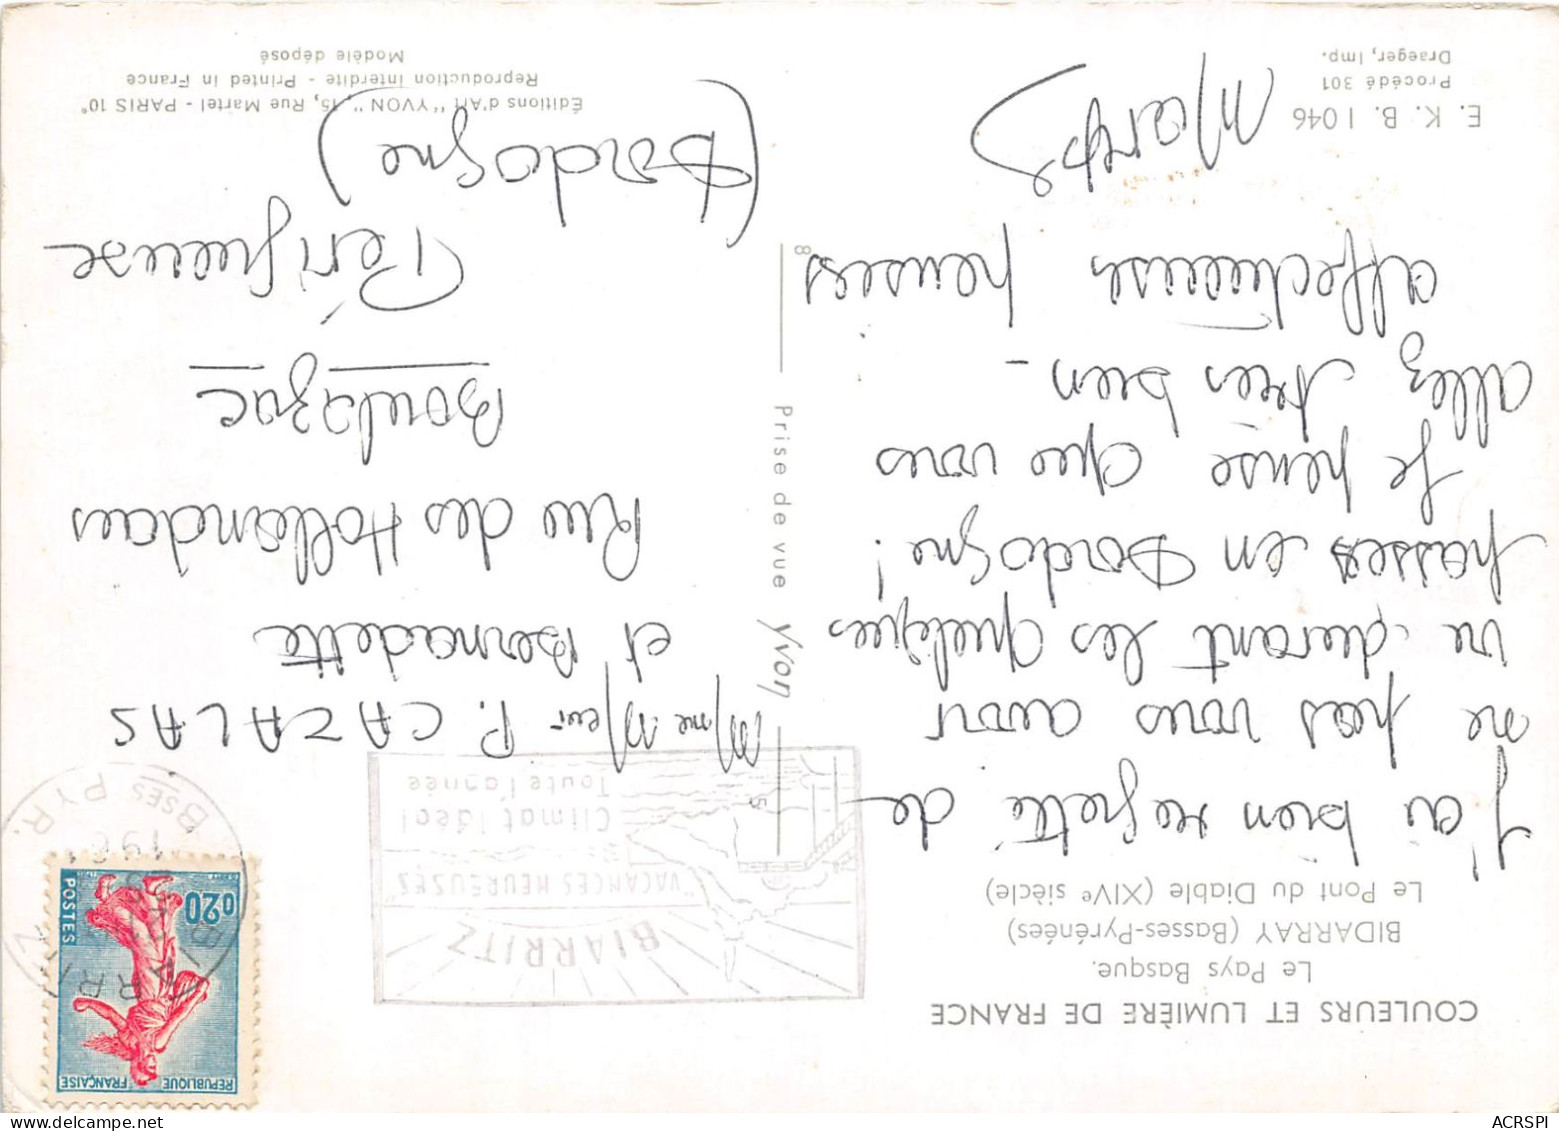 COULEURS ET LUMIÈRE DE FRANCE
Le Pays Basque.
BIDARRAY (Basses-Pyrénées)
Le Pont du Diable (XIVe siècle)
J'ai bien regretté de
ne pas vous avoir
vu durant les quelques
passés en Dordogne!
Je pense que vous
allez très bien -
affectueuses pensées
Maryse
E. K. B. 1046
Procédé 301
Draeger, Imp.
Prise de vue Yvon
8
5
REPUBLIQUE FRANÇAISE
0,20
POSTES
BIARRITZ
1961
BSES PYR.
BIARRITZ
"VACANCES HEUREUSES"
Climat Idéal
Toute l'année
Mme Meur P. CAZALAS
et Bernadette
Rue des Hollandais
Boulazac
Périgueux
(Dordogne)
Éditions d'Art "YVON", 15, Rue Martel - PARIS 10e
Reproduction interdite - Printed in France
Modèle déposé
www.delcampe.net
ACRSPI